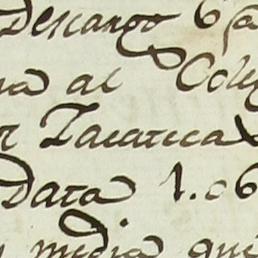 Descargo 6
na al Coleg
Zacateca
Data 1.06
media que